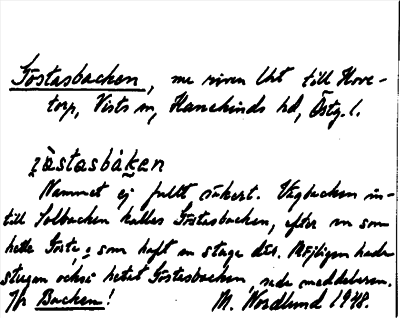 Göstasbacken, nu riven lht till Hove-
torp, Vists sn, Hanekinds hd, Östg. l.
jöstasbàken
Namnet ej fullt säkert. Vägbacken in-
till Solbacken kallas Göstasbacken, efter en som
hette Gösta o som haft en stuga där. Möjligen hade
stugan också hetat Göstasbacken, sade meddelaren.
Jfr Backen! M. Nordlund 1948.